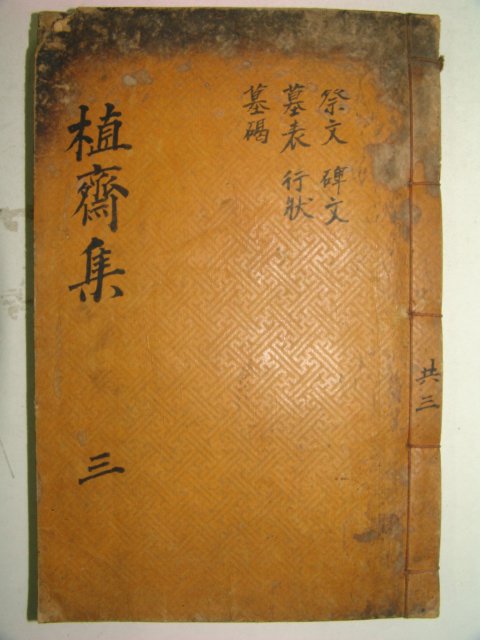 植齋集 三
祭文 碑文
墓表 行狀
墓碣
共三